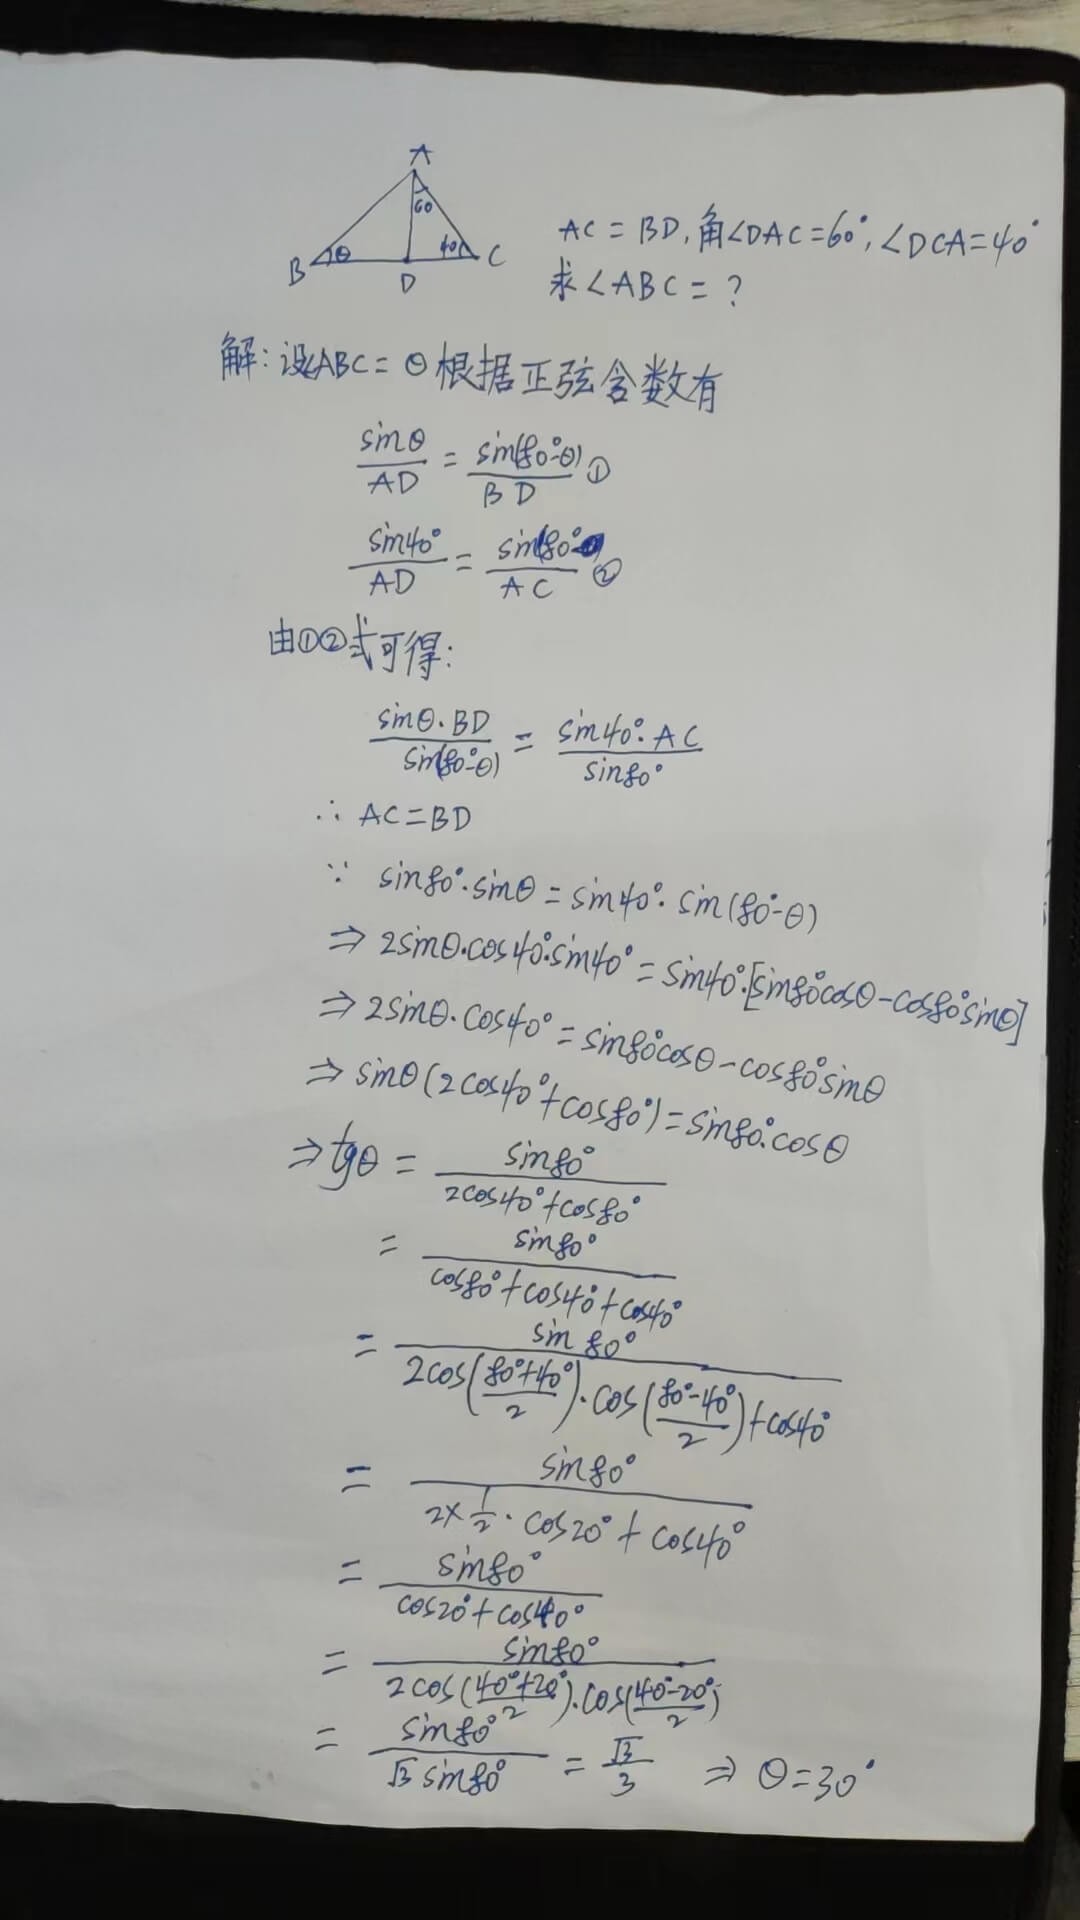 A
60
B θ 40 C
D
AC = BD, 角∠DAC=60°, ∠DCA=40°
求∠ABC = ?
解: 设∠ABC = θ 根据正弦含数有
sinθ/AD = sin(80°-θ)/BD ①
sin40°/AD = sin80°/AC ②
由①②式可得:
sinθ·BD/sin(80°-θ) = sin40°·AC/sin80°
∴ AC=BD
∵ sin80°·sinθ = sin40°·sin(80°-θ)
⇒ 2sinθ·cos40°·sin40° = sin40°·[sin80°cosθ-cos80°sinθ]
⇒ 2sinθ·cos40° = sin80°cosθ-cos80°sinθ
⇒ sinθ(2cos40°+cos80°) = sin80°·cosθ
⇒ tgθ = sin80°/(2cos40°+cos80°)
= sin80°/(cos80°+cos40°+cos40°)
= sin80°/(2cos((80°+40°)/2)·cos((80°-40°)/2)+cos40°)
= sin80°/(2×1/2·cos20°+cos40°)
= sin80°/(cos20°+cos40°)
= sin80°/(2cos((40°+20°)/2)·cos((40°-20°)/2))
= sin80°/(√3 sin80°) = √3/3 ⇒ θ=30°